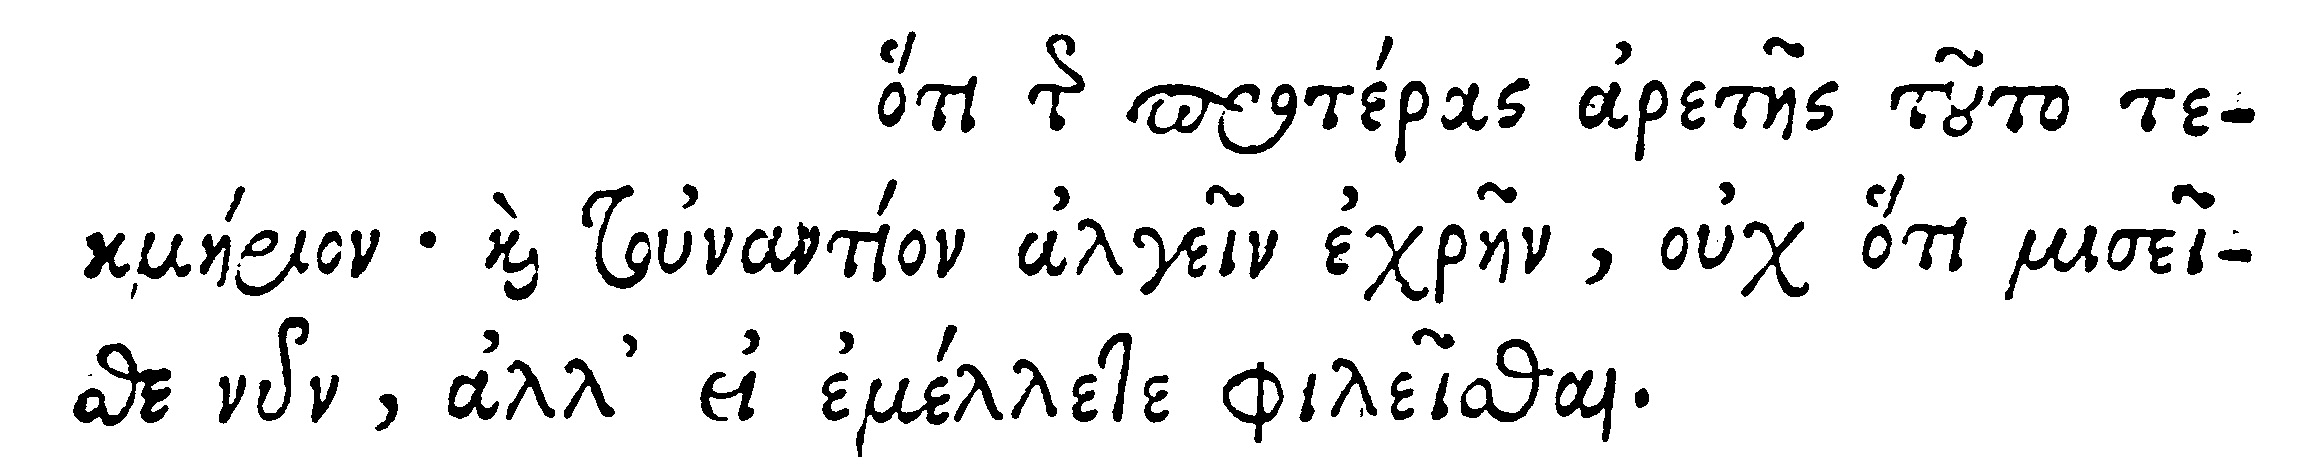 ὅτι τῆς προτέρας ἀρετῆς τοῦτο τε-
κμήριον· καὶ τοὐναντίον ἀλγεῖν ἐχρῆν, οὐχ ὅτι μισεῖ-
σθε νῦν, ἀλλ᾽ εἰ ἐμέλλετε φιλεῖσθαι.